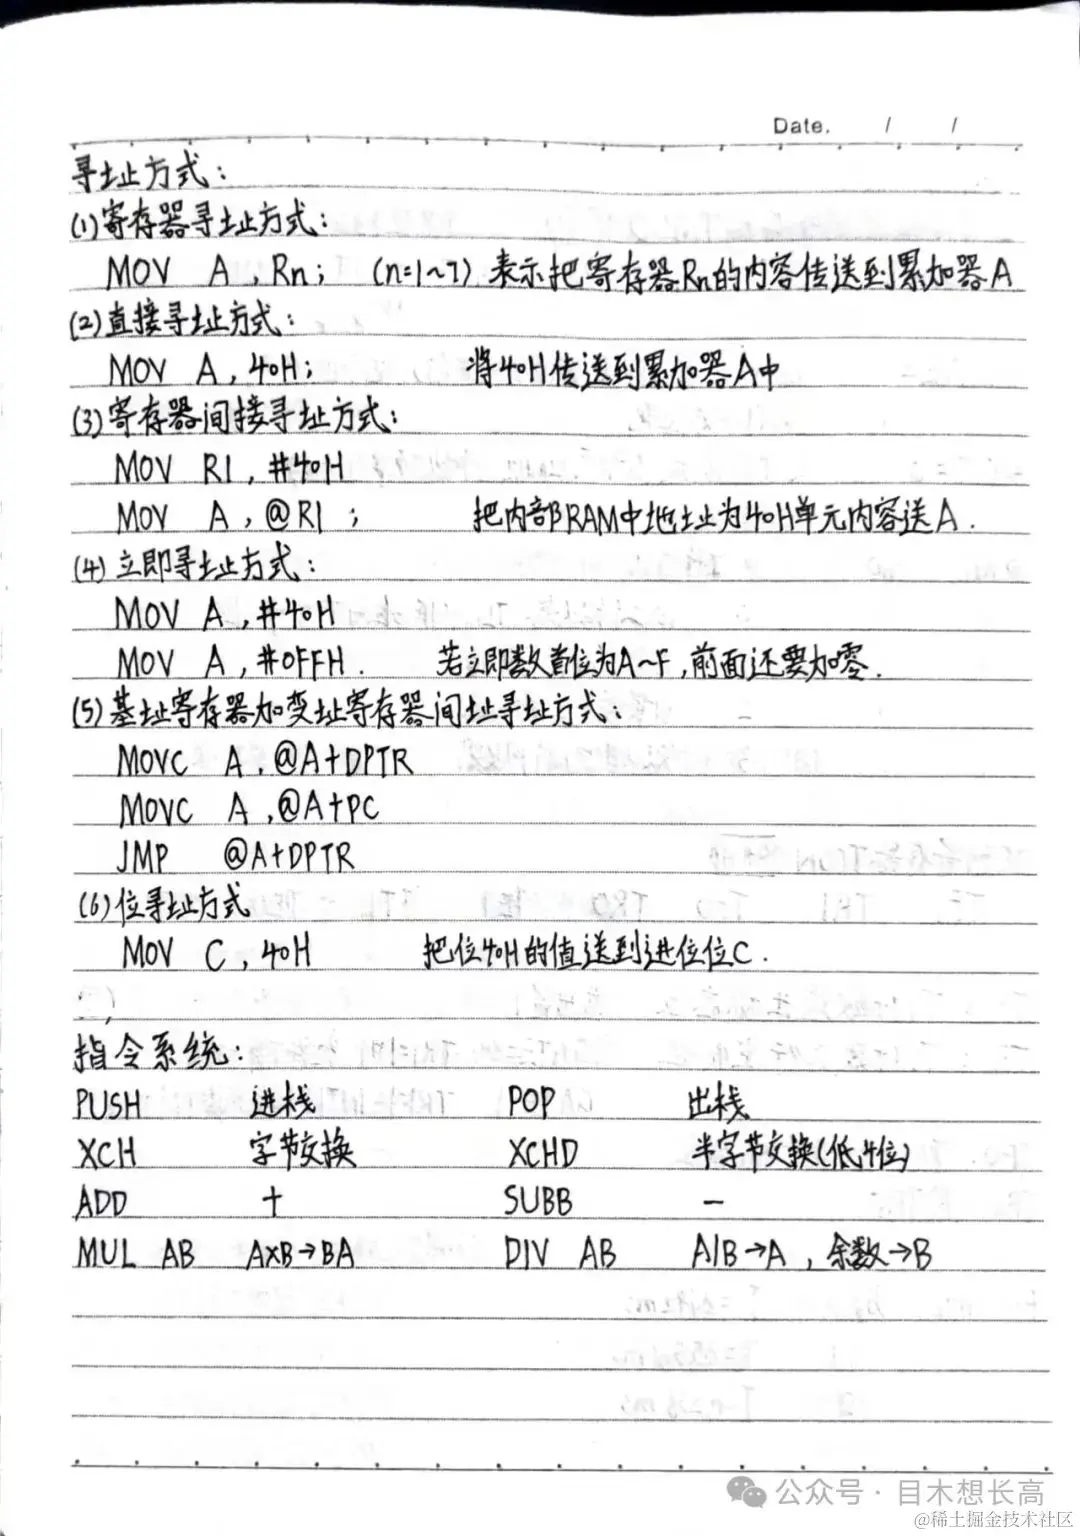 Date. / /
寻址方式:
(1)寄存器寻址方式:
MOV A, Rn; (n=1~7) 表示把寄存器Rn的内容传送到累加器A
(2)直接寻址方式:
MOV A, 40H; 将40H传送到累加器A中
(3)寄存器间接寻址方式:
MOV R1, #40H
MOV A, @R1 ; 把内部RAM中地址为40H单元内容送A.
(4)立即寻址方式:
MOV A, #40H
MOV A, #0FFH. 若立即数首位为A~F,前面还要加零.
(5)基址寄存器加变址寄存器间址寻址方式:
MOVC A, @A+DPTR
MOVC A, @A+PC
JMP @A+DPTR
(6)位寻址方式
MOV C, 40H 把位40H的值送到进位位C.
指令系统:
PUSH 进栈 POP 出栈
XCH 字节交换 XCHD 半字节交换(低4位)
ADD + SUBB -
MUL AB A×B→BA DIV AB A/B→A, 余数→B
公众号·目木想长高
@稀土掘金技术社区